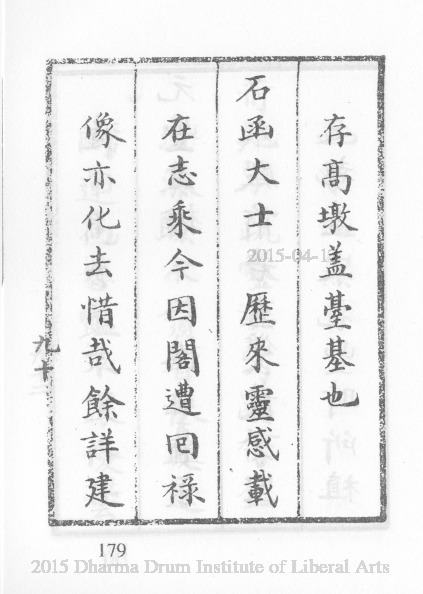 存高墩盖臺基也
石函大士 歷來靈感載
在志乘今因閣遭回禄
像亦化去惜哉餘詳建
九十
179
2015 Dharma Drum Institute of Liberal Arts